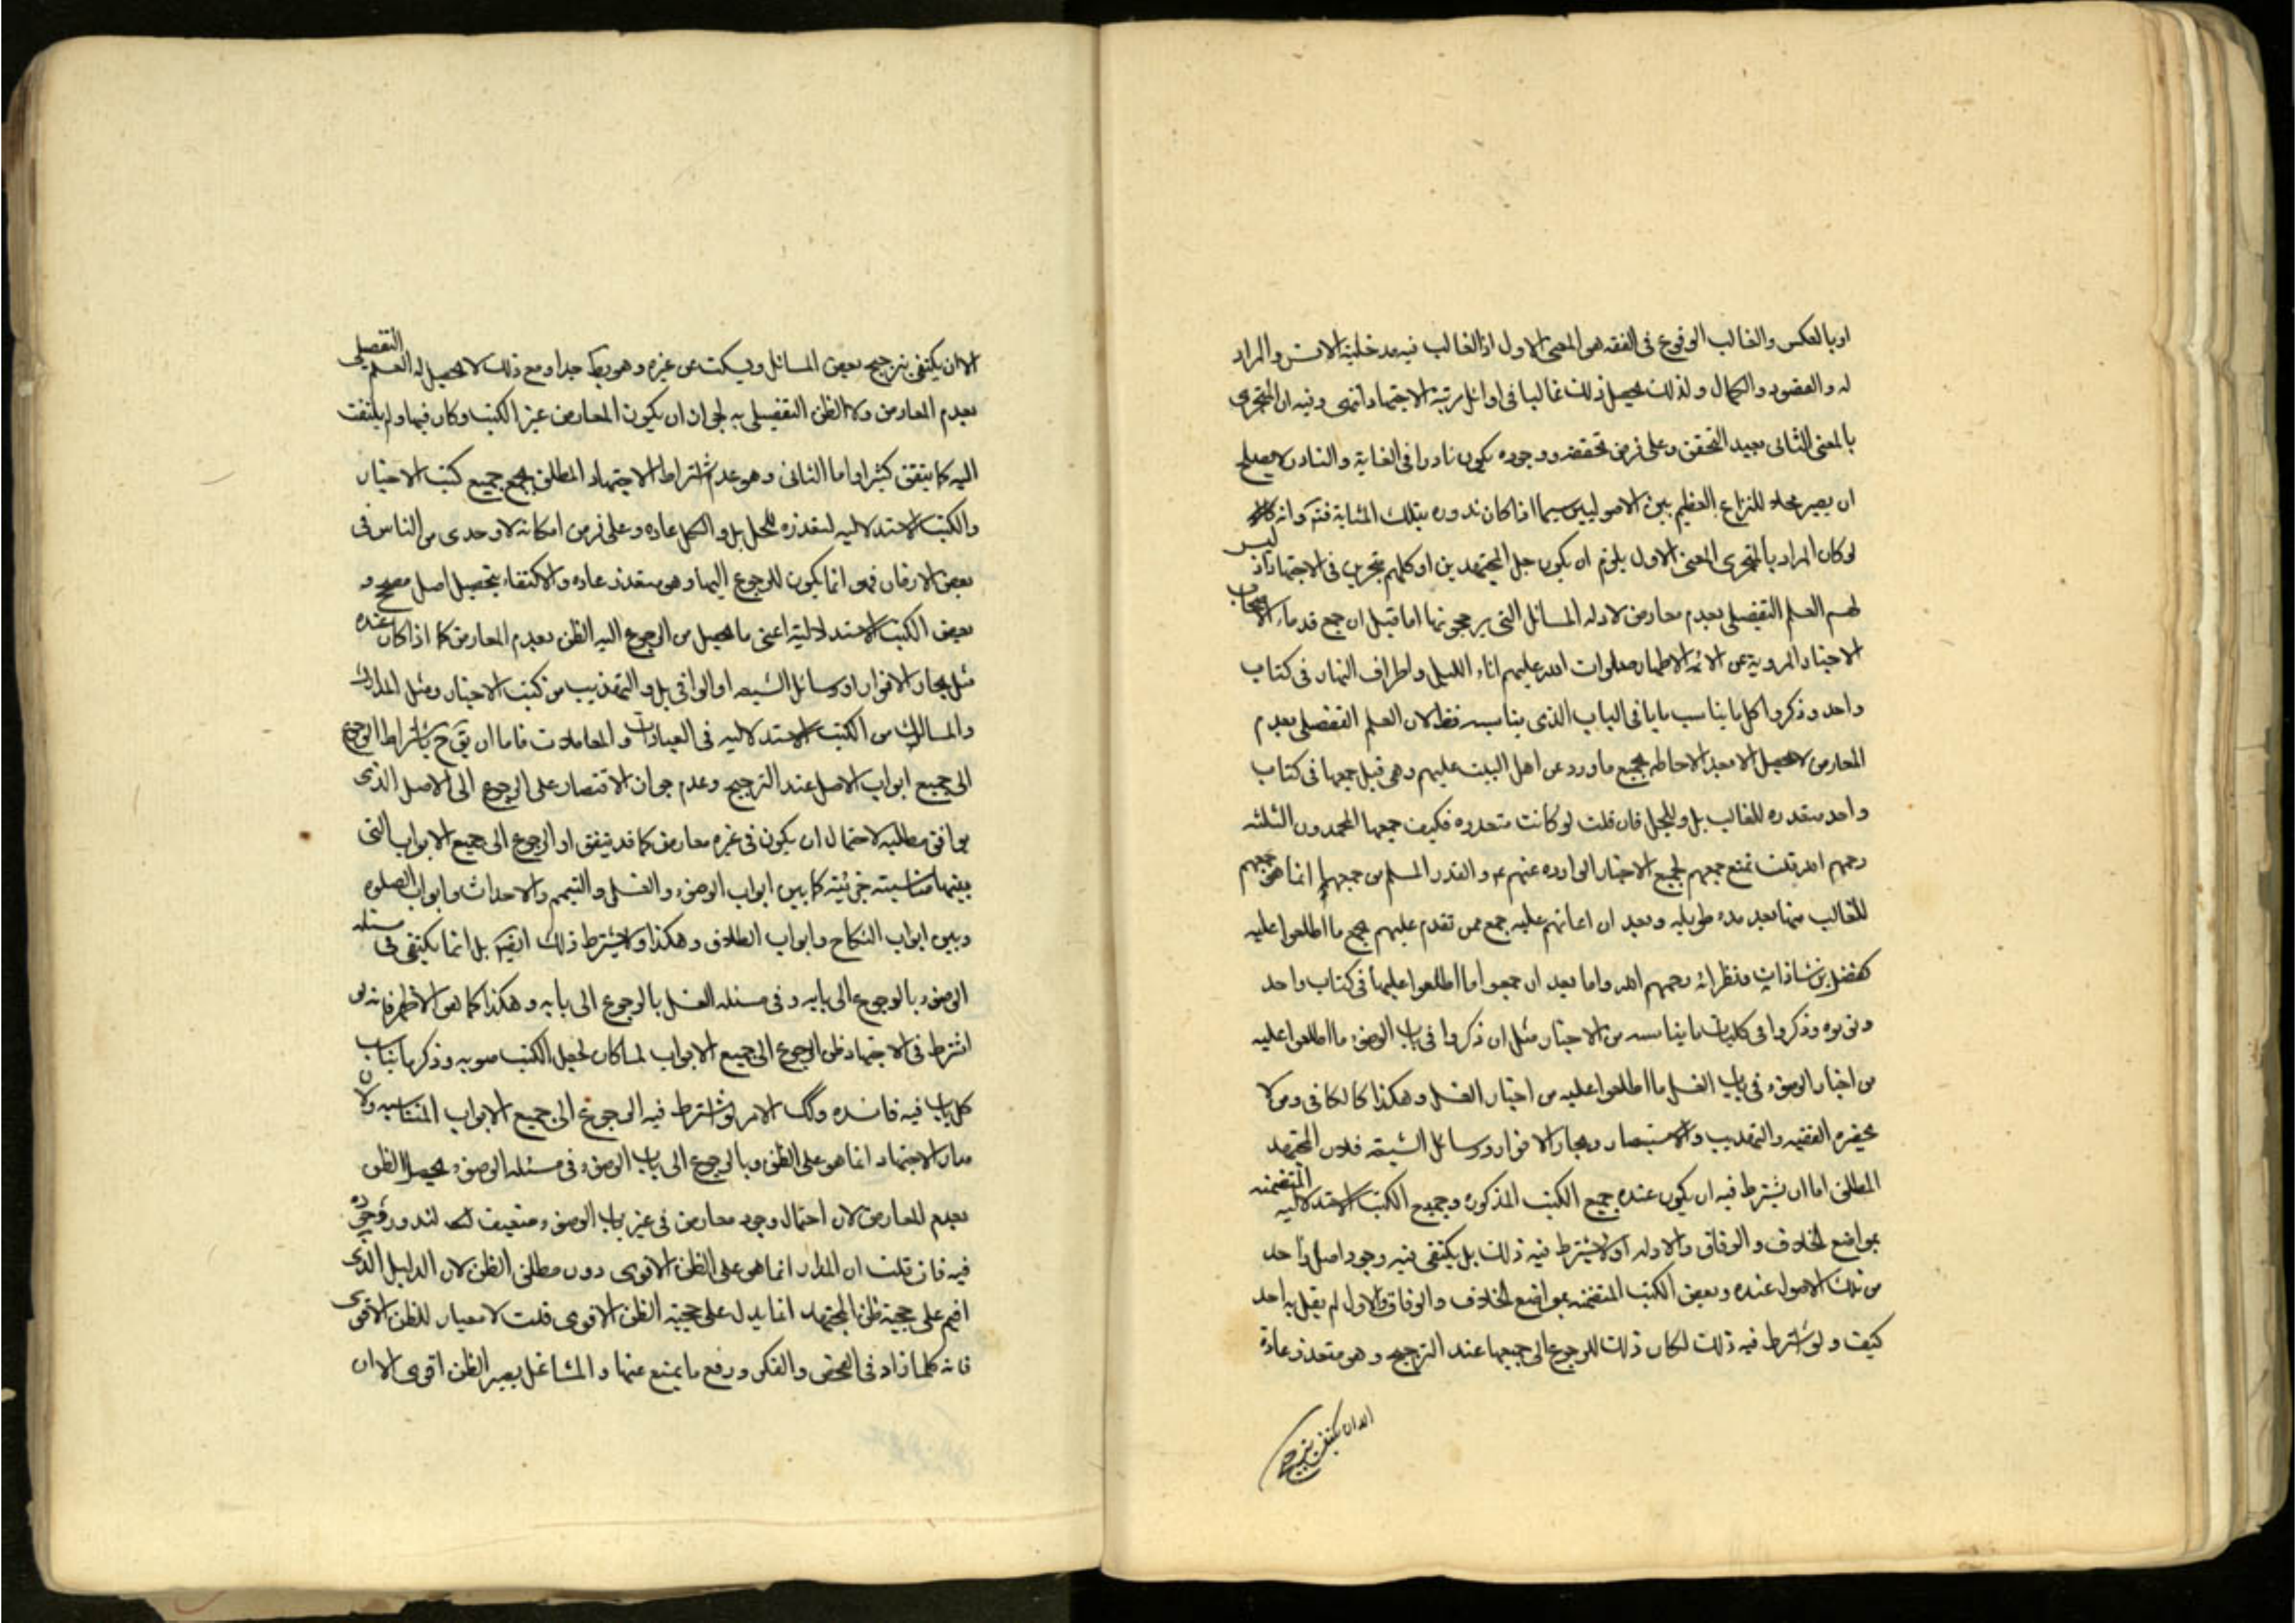 او بالعكس والغالب الوقوع فى الفقه هو المعنى الاول اذ الغالب فيه مدخلية الانس والمراد
له والقصور والكمال ولذلك يحصل ذلك غالبا فى اوائل رتبة الاجتهاد انتهى وفيه ان المتجزى
بالمعنى الثانى بعيد التحقق وعلى فرض تحققه ووجوده يكون نادرا فى الغاية والنادر لا يصلح
ان يصير محلا للنزاع العظيم بين الاصوليين سيما اذا كان ندوره بتلك المثابة فتم وانه
لو كان المراد بالمتجزى المعنى الاول يلزم ان يكون جل المجتهدين او كلهم متجزين فى الاجتهاد اذ ليس
لهم العلم التفصيلى بعدم معارض لادلة المسائل التى يرجحونها اما قبل ان جمع قدماء الاصحاب
الاخبار المروية عن الائمه الاطهار صلوات الله عليهم اناء الليل واطراف النهار فى كتاب
واحد وذكروا كل ما يناسب بابا فى الباب الذى يناسبه فظ لان العلم التفصيلى بعدم
المعارض لا يحصل الا بعد الاحاطه بجميع ما ورد عن اهل البيت عليهم وهى قبل جمعها فى كتاب
واحد متعذره للغالب بل وللجل فان قلت لو كانت متعذره فكيف جمعها المحمدون الثلثه
رحمهم الله قلت نمنع جمعهم لجميع الاخبار الوارده عنهم ع والقدر المسلم من جمعهم انما هو جمعهم
للغالب منها بعد مده طويله وبعد ان اعانهم عليه جمع ممن تقدم عليهم بجمع ما اطلعوا عليه
كفضل بن شاذان ونظرائه رحمهم الله واما بعد ان جمعوا ما اطلعوا عليها فى كتاب واحد
وبوبوه وذكروا فى كل باب ما يناسبه من الاخبار مثل ان ذكروا فى باب الوضوء ما اطلعوا عليه
من اخبار الوضوء وفى باب الغسل ما اطلعوا عليه من اخبار الغسل وهكذا كالكافى ومن لا
يحضره الفقيه والتهذيب والاستبصار وبحار الانوار ووسائل الشيعه فلان المجتهد
المطلق اما ان يشترط فيه ان يكون عنده جميع الكتب المذكوره وجميع الكتب الاستدلاليه المتضمنه
بمواضع الخلاف والوفاق والادله او لا يشترط فيه ذلك بل يكتفى فيه وجود اصل واحد
من تلك الاصول عنده وبعض الكتب المتضمنه بمواضع الخلاف والوفاق والاول لم يقل به احد
كيف ولو اشترط فيه ذلك لكان ذلك للرجوع الى جميعها عند الترجيح وهو متعذر عادة
الا ان يكتفى بترجيح
الا ان يكتفى بترجيح بعض المسائل ويسكت عن غيره وهو بط جدا ومع ذلك لا يحصل له العلم التفصيلى
بعدم المعارض ولا الظن التفصيلى به لجواز ان يكون المعارض غير الكتب وكان فيها ولم يلتفت
اليه كما يتفق كثيرا واما الثانى وهو عدم اشتراط الاجتهاد المطلق بجمع جميع كتب الاخبار
والكتب الاستدلاليه لتعذره للجل بل والكل عاده وعلى فرض امكانه لاوحدى من الناس فى
بعض الازمان فهو انما يكون للرجوع اليها وهو متعذر عاده والاكتفاء بتحصيل اصل مصحح و
بعض الكتب الاستدلاليه اعنى ما يحصل من الرجوع اليه الظن بعدم المعارض كما اذا كان عنده
مثل بحار الانوار او وسائل الشيعه او الوافى بل والتهذيب من كتب الاخبار ومثل المدارك
والمسالك من الكتب الاستدلاليه فى العبادات والمعاملات فاما ان يق ح باشتراط الرجوع
الى جميع ابواب الاصل عند الترجيح وعدم جواز الاقتصار على الرجوع الى الاصل الذى
يوافق مطلبه لاحتمال ان يكون فى غيره معارض كما قد يتفق او الرجوع الى جميع الابواب التى
بينها مناسبته جزئيته كما بين ابواب الوضوء والغسل والتيمم والاحداث وابواب الصلوه
وبين ابواب النكاح وابواب الطلاق وهكذا ولا يشترط ذلك ايض بل انما يكتفى فى مسئله
الوضوء بالرجوع الى بابه وفى مسئله الغسل بالرجوع الى بابه وهكذا كما هو الاظهر فانه لو
اشترط فى الاجتهاد ظن الرجوع الى جميع الابواب لما كان لجعل الكتب مبوبه وذكر ما يناسب
كل باب فيه فائده وكك الامر لو اشترط فيه الرجوع الى جميع الابواب المتناسبه ولان
مدار الاجتهاد انما هو على الظن وبالرجوع الى باب الوضوء فى مسئله الوضوء يحصل الظن
بعدم المعارض لان احتمال وجود معارض فى غير باب الوضوء ضعيف لندور وجوده
فيه فان قلت ان المدار انما هو على الظن الاقوى دون مطلق الظن لان الدليل الذى
اقيم على حجية ظن المجتهد انما يدل على حجية الظن الاقوى قلت لا معيار للظن الاقوى
فانه كلما زاد فى الفحص والفكر ورفع ما يمنع عنها والمشاغل يصير الظن اقوى الا ان